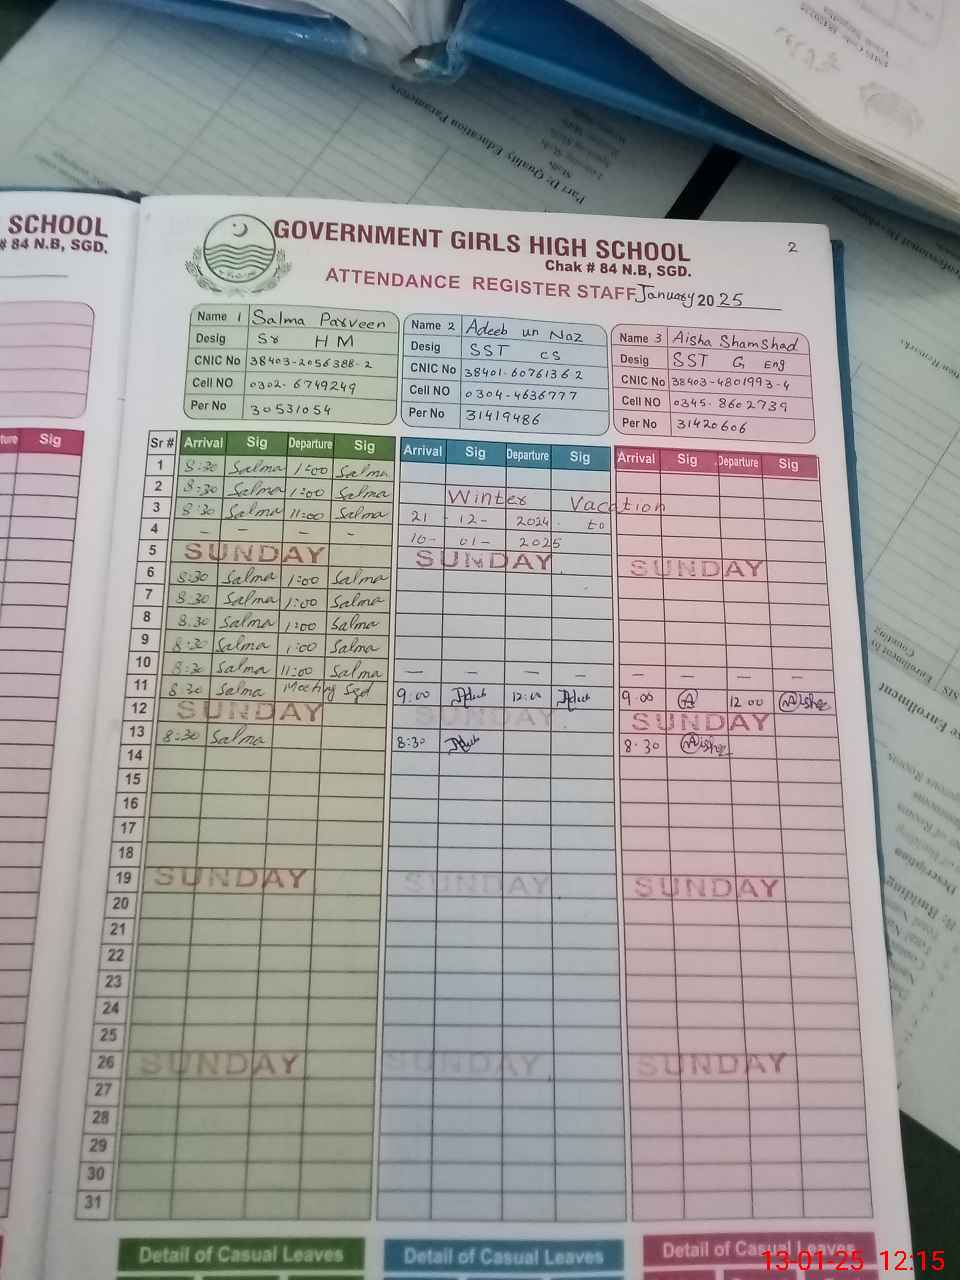 Part D: Quality Education Parameters
SCHOOL
# 84 N.B, SGD.
GOVERNMENT GIRLS HIGH SCHOOL
2
Chak # 84 N.B, SGD.
ATTENDANCE REGISTER STAFF January 2025
Name 1 Salma Parveen
Desig Sr HM
CNIC No 38403-2056388-2
Cell NO 0302-6749249
Per No 30531054
Name 2 Adeeb un Naz
Desig SST CS
CNIC No 38401-6076136 2
Cell NO 0304-4636777
Per No 31419486
Name 3 Aisha Shamshad
Desig SST G Eng
CNIC No 38403-4801993-4
Cell NO 0345-8602739
Per No 31420606
ture Sig
Sr # Arrival Sig Departure Sig Arrival Sig Departure Sig Arrival Sig Departure Sig
1 8:30 Salma 1:00 Salma
2 8:30 Salma 1:00 Salma Winter Vacation
3 8:30 Salma 11:00 Salma 21 - 12 - 2024 - to
4 - - - - 10- 01- 2025
5 SUNDAY SUNDAY SUNDAY
6 8:30 Salma 1:00 Salma
7 8.30 Salma 1:00 Salma
8 8.30 Salma 1:00 Salma
9 8:30 Salma 1:00 Salma
10 8:30 Salma 11:00 Salma — — — — — — — —
11 8:30 Salma Meeting Sgd 9:00 12:00 9:00 12 00 Aisha
12 SUNDAY SUNDAY SUNDAY
13 8:30 Salma 8:30 8.30 Aisha
14
15
16
17
18
19 SUNDAY SUNDAY SUNDAY
20
21
22
23
24
25
26 SUNDAY SUNDAY SUNDAY
27
28
29
30
31
Detail of Casual Leaves Detail of Casual Leaves Detail of Casual Leaves
13-01-25 12:15